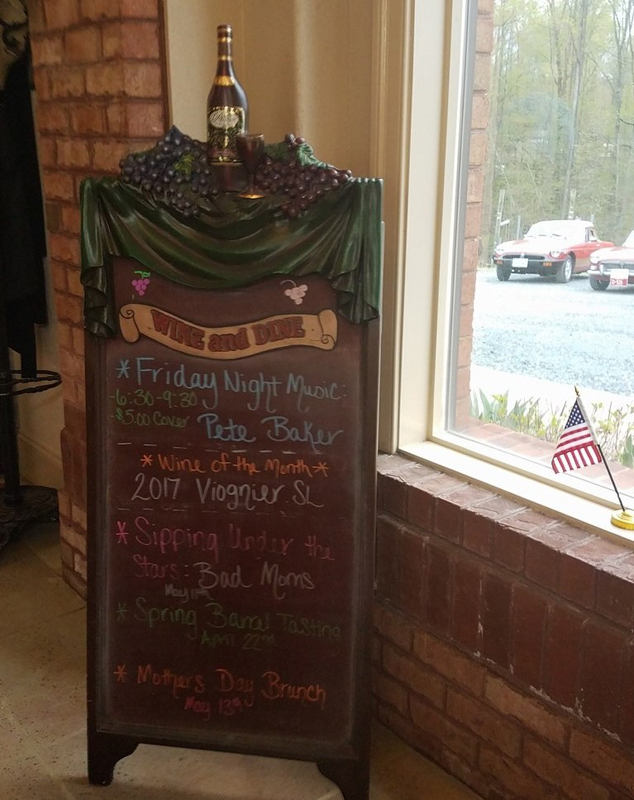 WINE and DINE
* Friday Night Music:
-6:30-9:30
-$5.00 Cover Pete Baker
* Wine of the Month *
2017 Viognier SL
* Sipping Under the
Stars: Bad Moms
May 11th
* Spring Barrel Tasting
April 22nd
* Mothers Day Brunch
May 13th